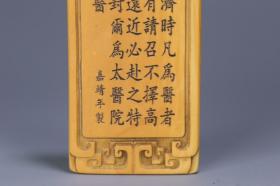 濟時凡為醫者
有請召不擇高
遠近必赴之特
封爾為太醫院
醫
嘉靖年製